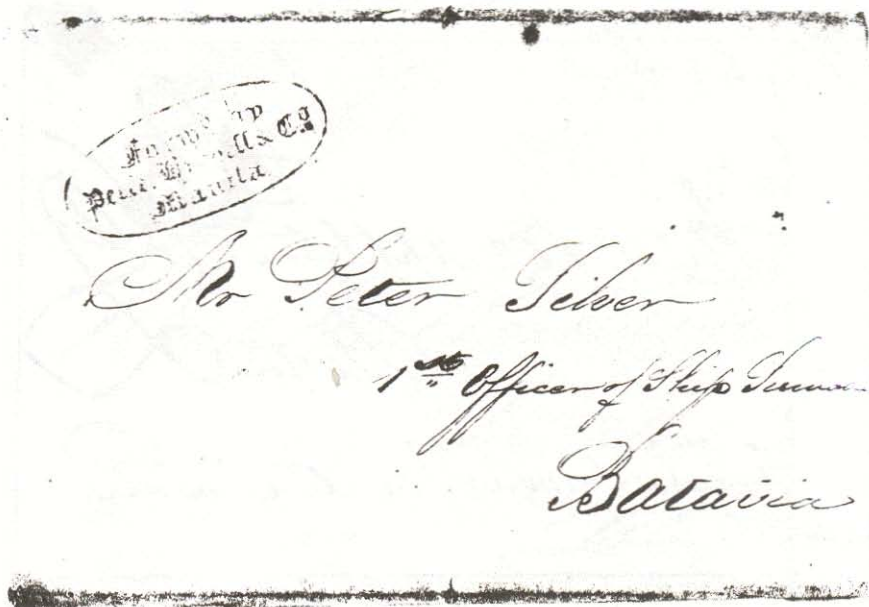 Forwd by
Peele, Hubbell & Co.
Manila
Mr Peter Silver
1st Officer of Ship
Batavia